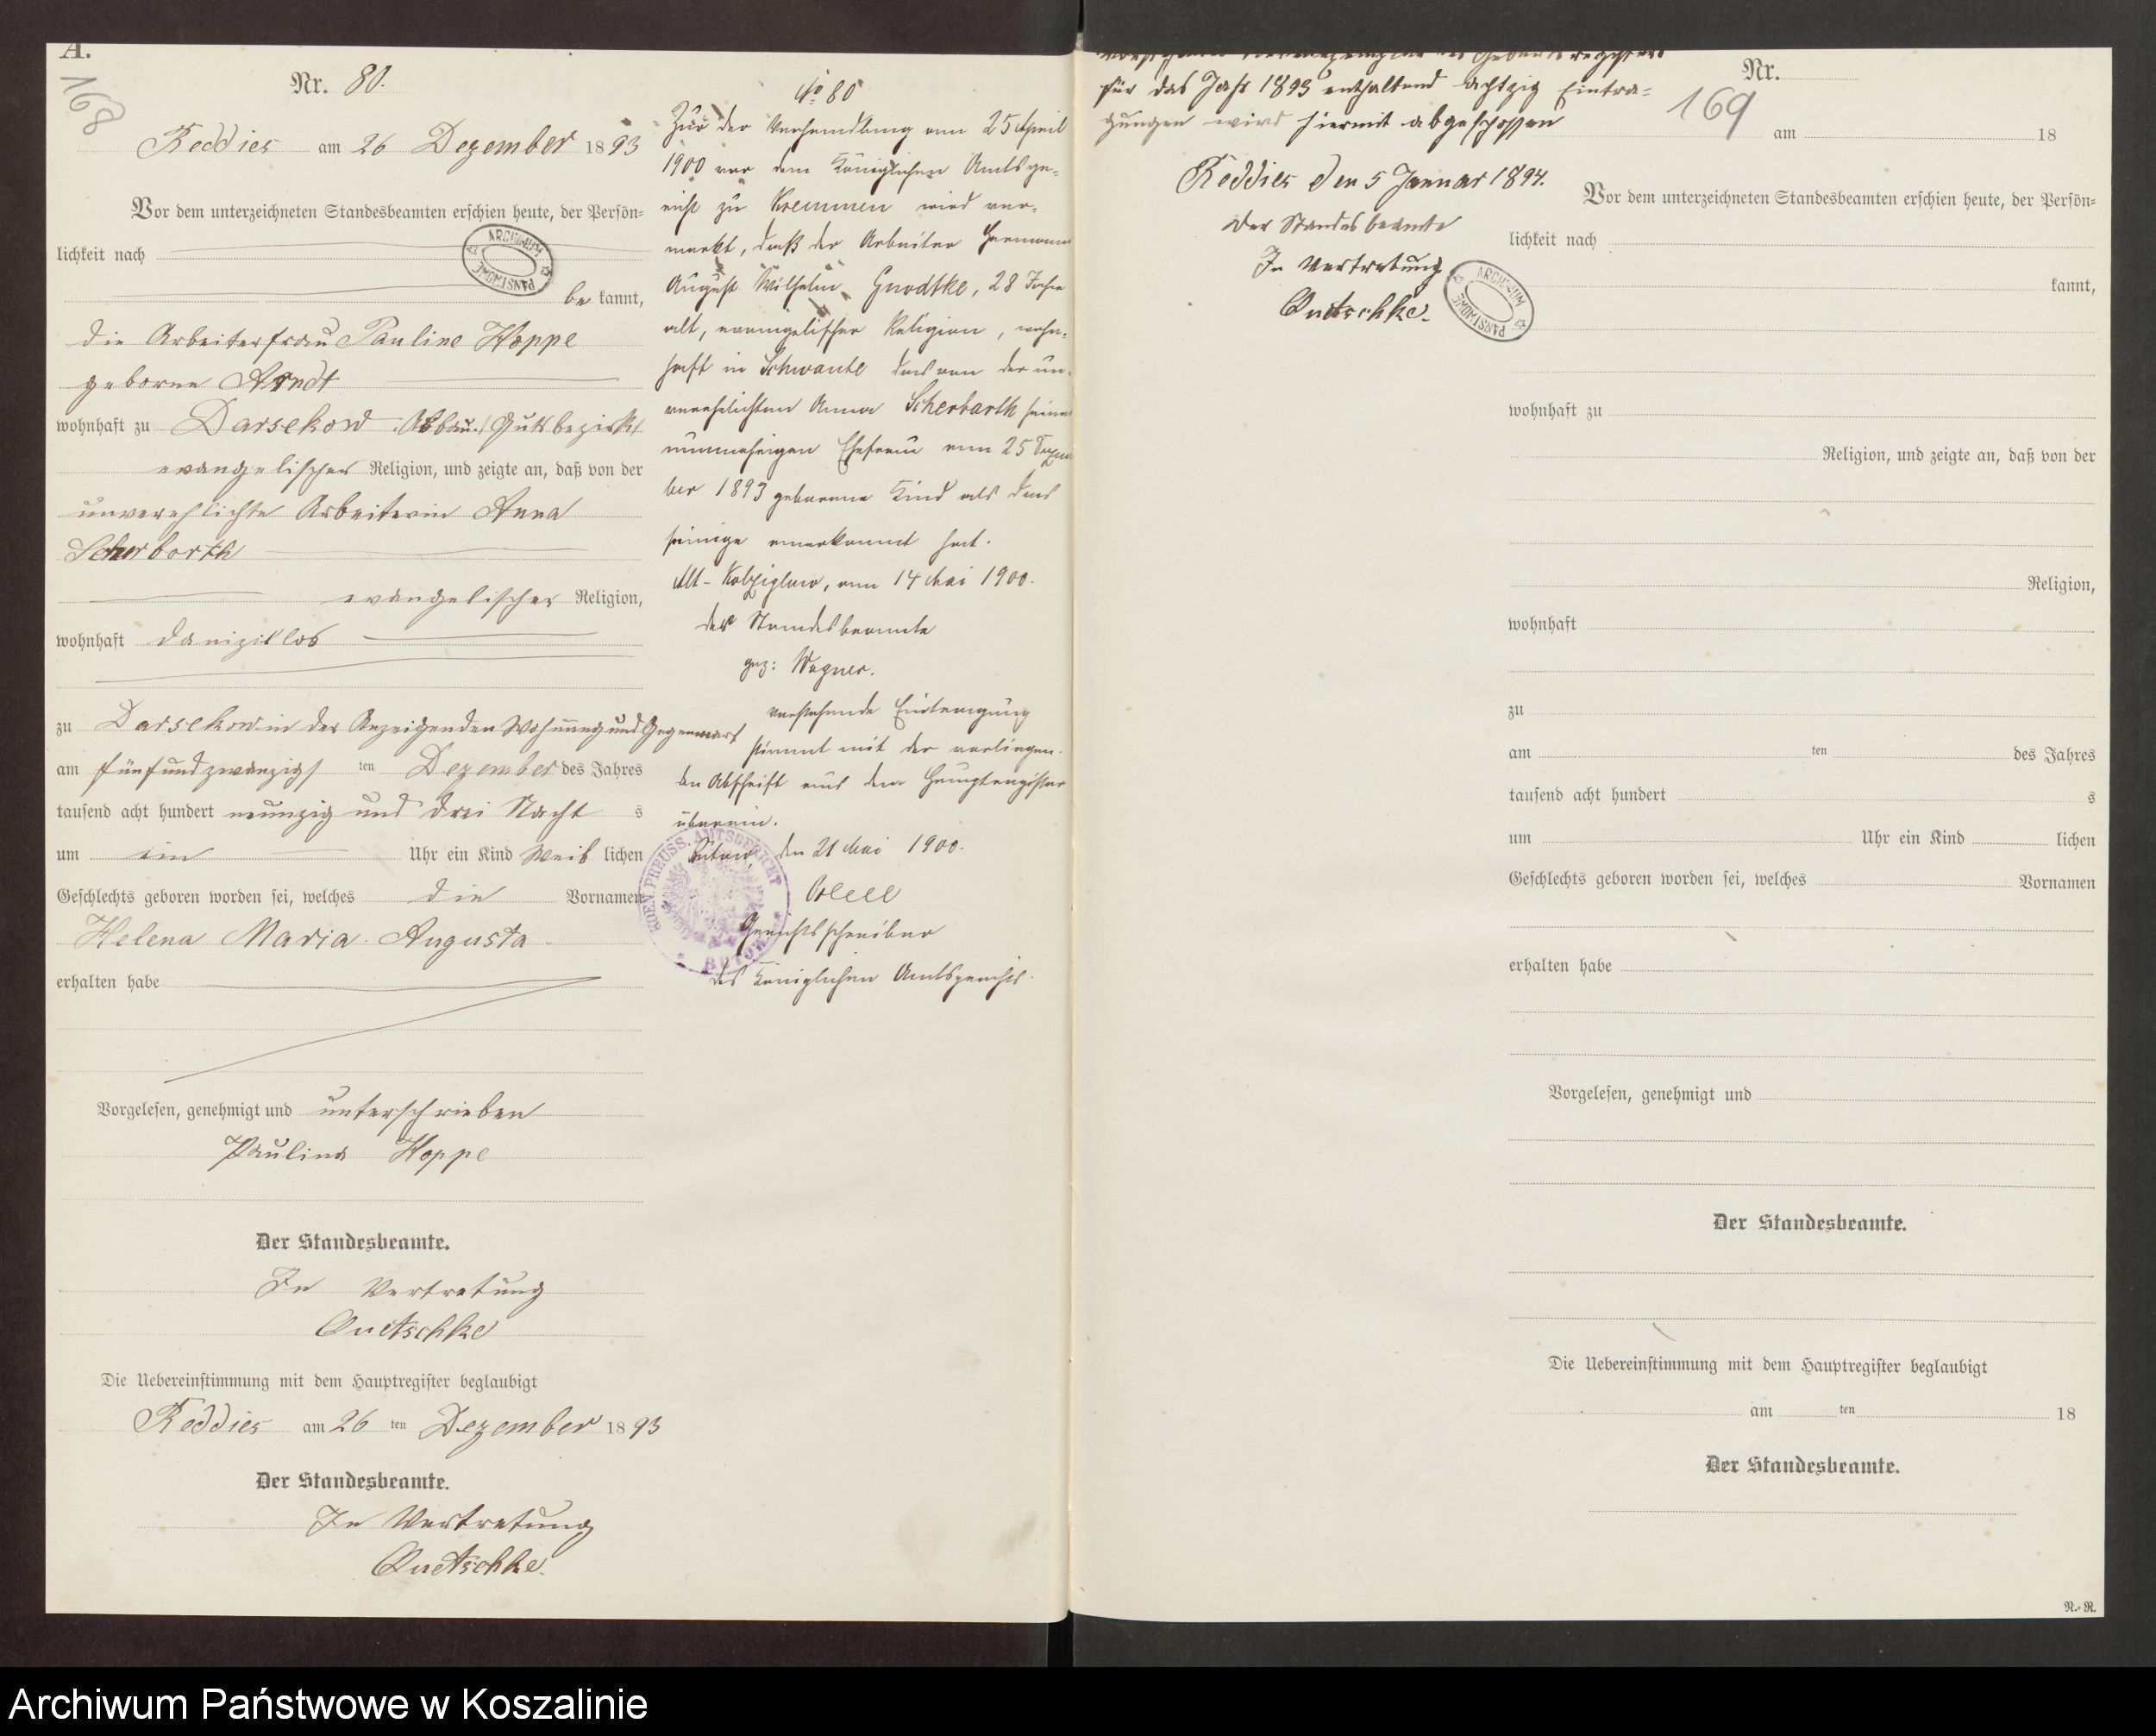 A.
168
Nr. 80.
Reddies am 26 Dezember 1893
Vor dem unterzeichneten Standesbeamten erschien heute, der Persön=
lichkeit nach
be kannt,
die Arbeiterfrau Pauline Hoppe
geborne Arndt
wohnhaft zu Darsekow Abbau (Gutsbezirk)
evangelischer Religion, und zeigte an, daß von der
unverehlichte Arbeiterin Anna
Scherbarth
evangelischer Religion,
wohnhaft
zu Darsekow in der Anzeigenden Wohnung und Gegenwart
am fünfundzwanzigs ten Dezember des Jahres
tausend acht hundert neunzig und drei Nacht s
um ein Uhr ein Kind weib lichen
Geschlechts geboren worden sei, welches die Vornamen
Helena Maria Augusta
erhalten habe
Vorgelesen, genehmigt und unterschrieben
Pauline Hoppe
Der Standesbeamte.
In Vertretung
Quetschke
Die Uebereinstimmung mit dem Hauptregister beglaubigt
Reddies am 26 ten Dezember 1893
Der Standesbeamte.
In Vertretung
Quetschke.
No 80
Zur der Verhandlung vom 25 April
1900 vor dem Königlichen Amtsge-
richt zu Kremmen wird ver-
merkt, daß der Arbeiter Hermann
August Wilhelm Gnodtke, 28 Jahre
alt, evangelischer Religion, wohn-
haft in Schwante das von der un-
verehelichten Anna Scherbarth seiner
nunmehrigen Ehefrau am 25 Dezem
ber 1893 geborene Kind als das
seinige anerkannt hat.
Alt-Kolziglow, am 14 Mai 1900.
der Standesbeamte
gez: Wagner.
Vorstehende Eintragung
stimmt mit der vorliegen-
den Abschrift aus dem Hauptregister
überein.
Bütow, den 21 Mai 1900.
Gerichtsschreiber
des Königlichen Amtsgerichts.
KOEN. PREUSS. AMTSGERICHT
BUTOW
ARCHIWUM
PAŃSTWOWE
für das Jahr 1893 enthaltend achtzig Eintra=
gungen wird hiermit abgeschlossen
Reddies den 5 Januar 1894.
Der Standesbeamte
In Vertretung
Quetschke.
ARCHIWUM
PAŃSTWOWE
Nr.
169
am 18
Vor dem unterzeichneten Standesbeamten erschien heute, der Persön=
lichkeit nach
kannt,
wohnhaft zu
Religion, und zeigte an, daß von der
Religion,
wohnhaft
zu
am ten des Jahres
tausend acht hundert s
um Uhr ein Kind lichen
Geschlechts geboren worden sei, welches Vornamen
erhalten habe
Vorgelesen, genehmigt und
Der Standesbeamte.
Die Uebereinstimmung mit dem Hauptregister beglaubigt
am ten 18
Der Standesbeamte.
N.-R.
Archiwum Państwowe w Koszalinie